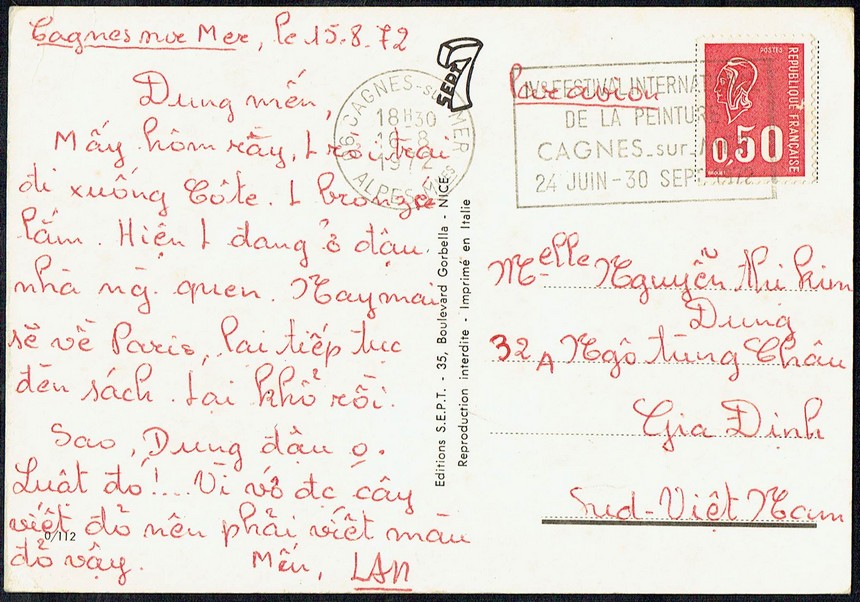 Cagnes sur Mer, le 15-8-72
Dung mến,
Mấy hôm rày, L rời trại
đi xuống Côte. L bronzée
lắm. Hiện L đang ở đậu
nhà ng. quen. Nay mai
sẽ về Paris, lại tiếp tục
đèn sách. Lại khổ rồi.
Sao, Dung đậu o.
Luật đó!... Vì vớ đc cây
viết đỏ nên phải viết màu
đỏ vậy.
Mến, LAN
0/112
Editions S.E.P.T. - 35, Boulevard Gorbella - NICE
Reproduction interdite - Imprimé en Italie
SEPT
06 CAGNES-sur-MER
18H30
1972
ALPES
FESTIVAL INTERNAT
DE LA PEINTURE
CAGNES-sur-M
24 JUIN-30 SEPT
Par avion
POSTES
REPUBLIQUE FRANÇAISE
0,50
Melle Nguyễn thi kim
Dung
32A Ngô tùng Châu
Gia Định
Sud-Việt Nam